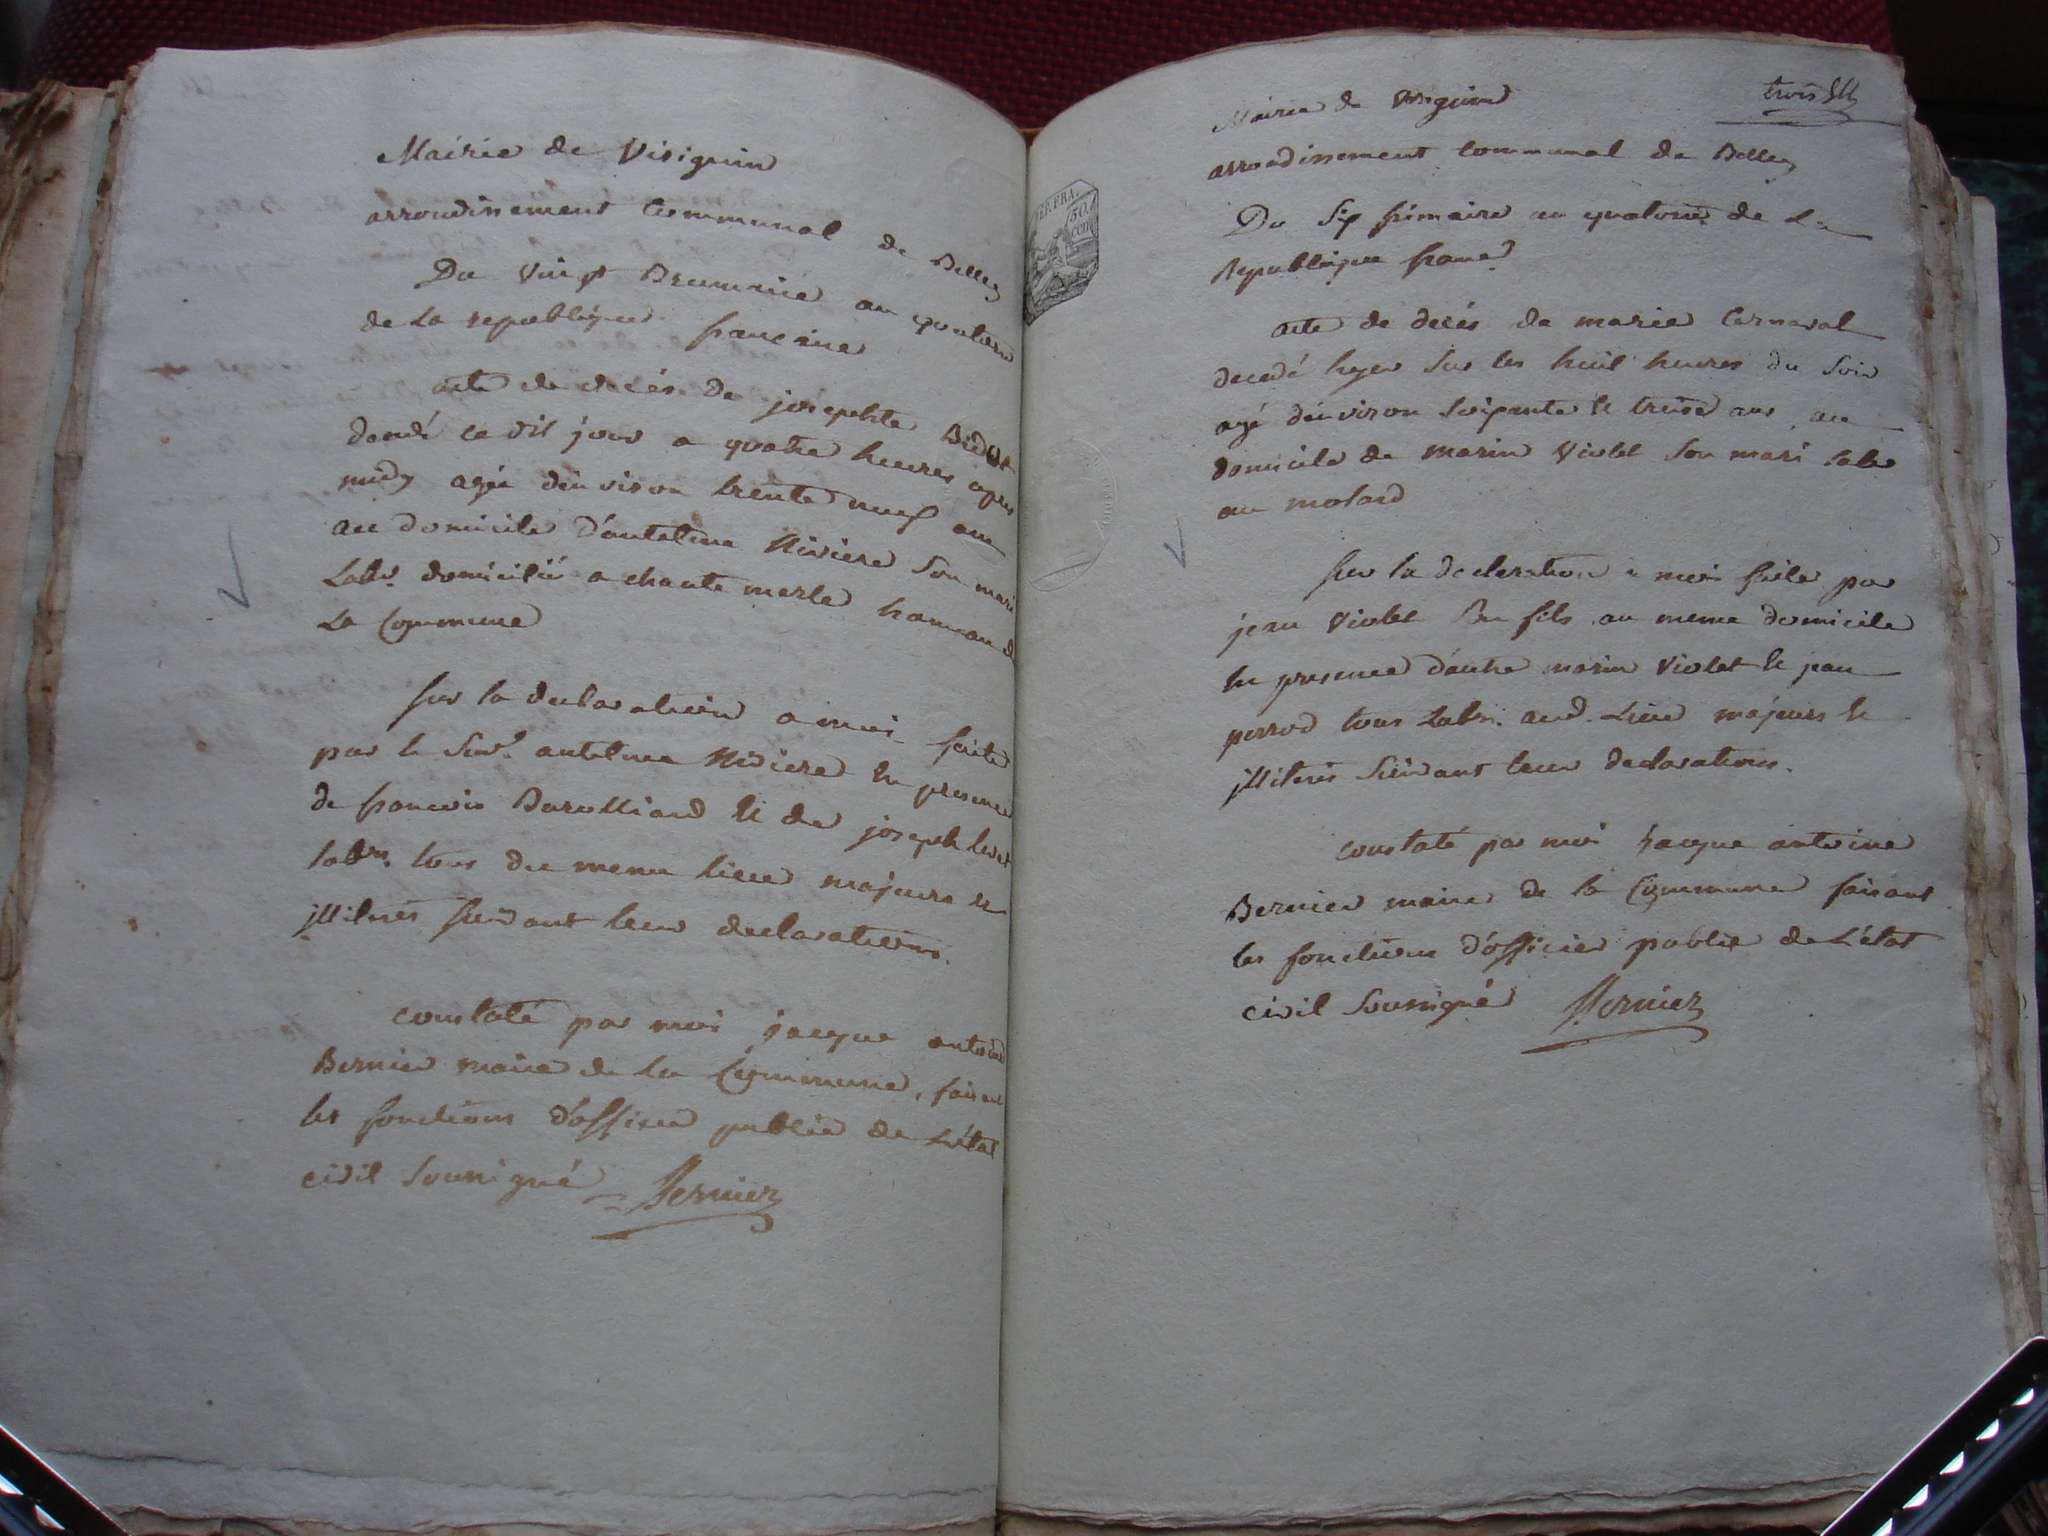 Mairie de Virignin
arrondissement Communal de Belley
Du Vingt Brumaire an quatorze
de La republique francaise
acte de decés De josephte
decedé ce dit jour a quatre heures apres
midy agée dénviron trente neuf ans
au domicile D'antelme Riviere Son mari
Labr. domicilié a chante merle hameau de
La Commune
Sur la declaration a moi faite
par le Susd. antelme Riviere En presence
de francois Barolliard Et de joseph
labrs. tous du meme lieu majeurs et
illiterés Suivant leur declarations.
constaté par moi jacque antoine
Bernier maire de La Commune, faisant
les fonctions d'officier public de L'état
civil Soussigné Bernier
trois
Mairie de Virignin
arrondissement Communal de Belley
Du Six frimaire an quatorze de La
Republique franc.
REP. FRA.
50
cen
acte de decés de marie Carnaval
decedé hyer Sur les huit heures du Soir
agé dénviron Soixante et treise ans, au
domicile de marin Violet Son mari labr
au molard
Sur la declaration a moi faite par
jean Violet Son fils au meme domicile
En presence d'autre marin Violet et jean
perrod tous Labrs. aud. Lieu majeurs et
illiterés Suivant leur declarations.
constaté par moi Jacque antoine
Bernier maire de la Commune faisant
les fonctions d'officier public de L'état
civil Soussigné Bernier